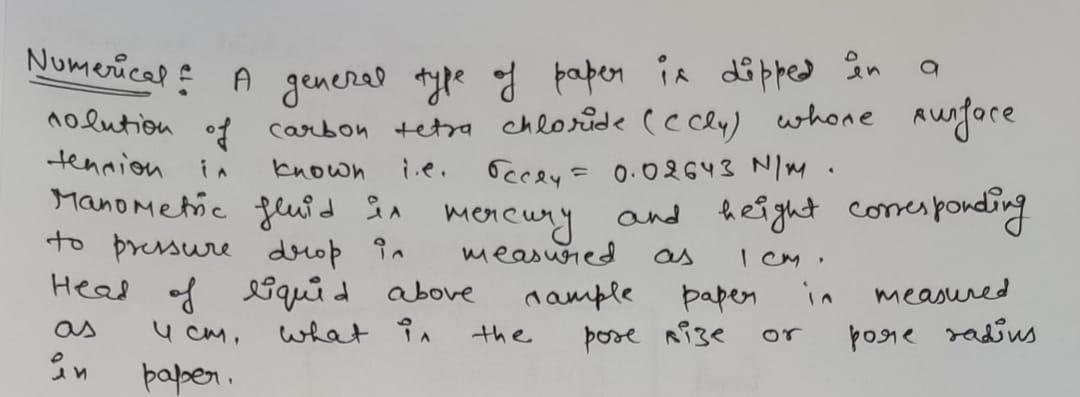 Numerical : A general type of paper is dipped in a
solution of carbon tetra chloride (CCl4) whose surface
tension is known i.e. σCCl4 = 0.02643 N/M .
Manometric fluid is mercury and height corresponding
to pressure drop is measured as 1 cm .
Head of liquid above sample paper is measured
as 4 cm, what is the pore size or pore radius
in paper.